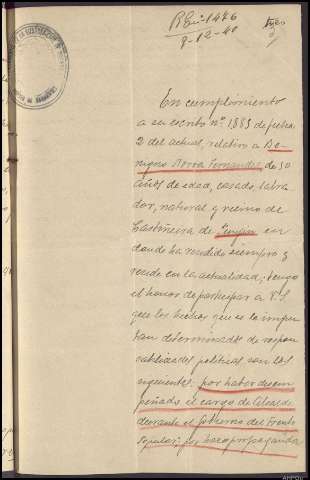 REn-1476
9-12-40
En cumplimiento
a su escrito nº 1.885 de fecha
2 del actual, relativo a Be-
nigno Novoa Fernandez, de 50
años de edad, casado labra
dor, natural y vecino de
Castiñeira de en
donde ha rendido siempre y
rende en la actualidad; tengo
el honor de participar a V.S.
que los hechos que se le impu
tan determinados de respon
sabilidades politicas son los
siguientes: por haber desem
peñado el cargo de Alcalde
durante el Gobierno del Frente
Popular; por hacer propaganda